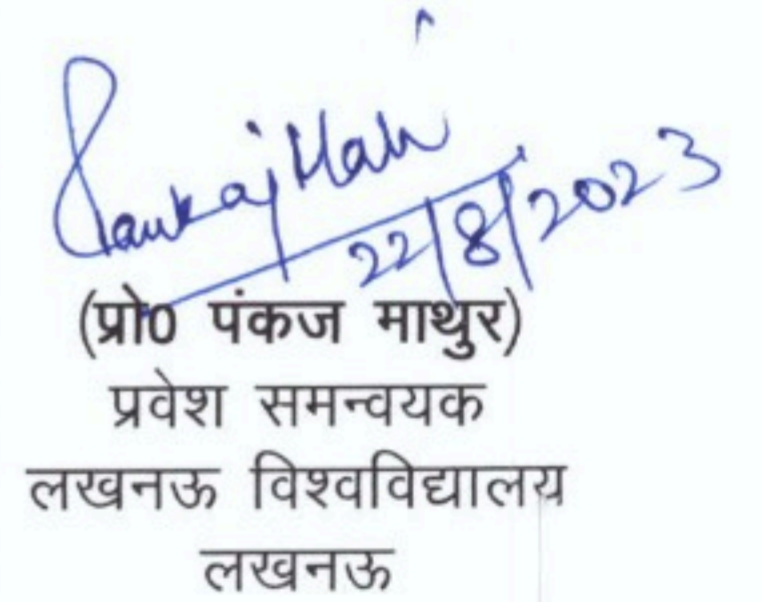 Pankaj Math
22/8/2023
(प्रो0 पंकज माथुर)
प्रवेश समन्वयक
लखनऊ विश्वविद्यालय
लखनऊ